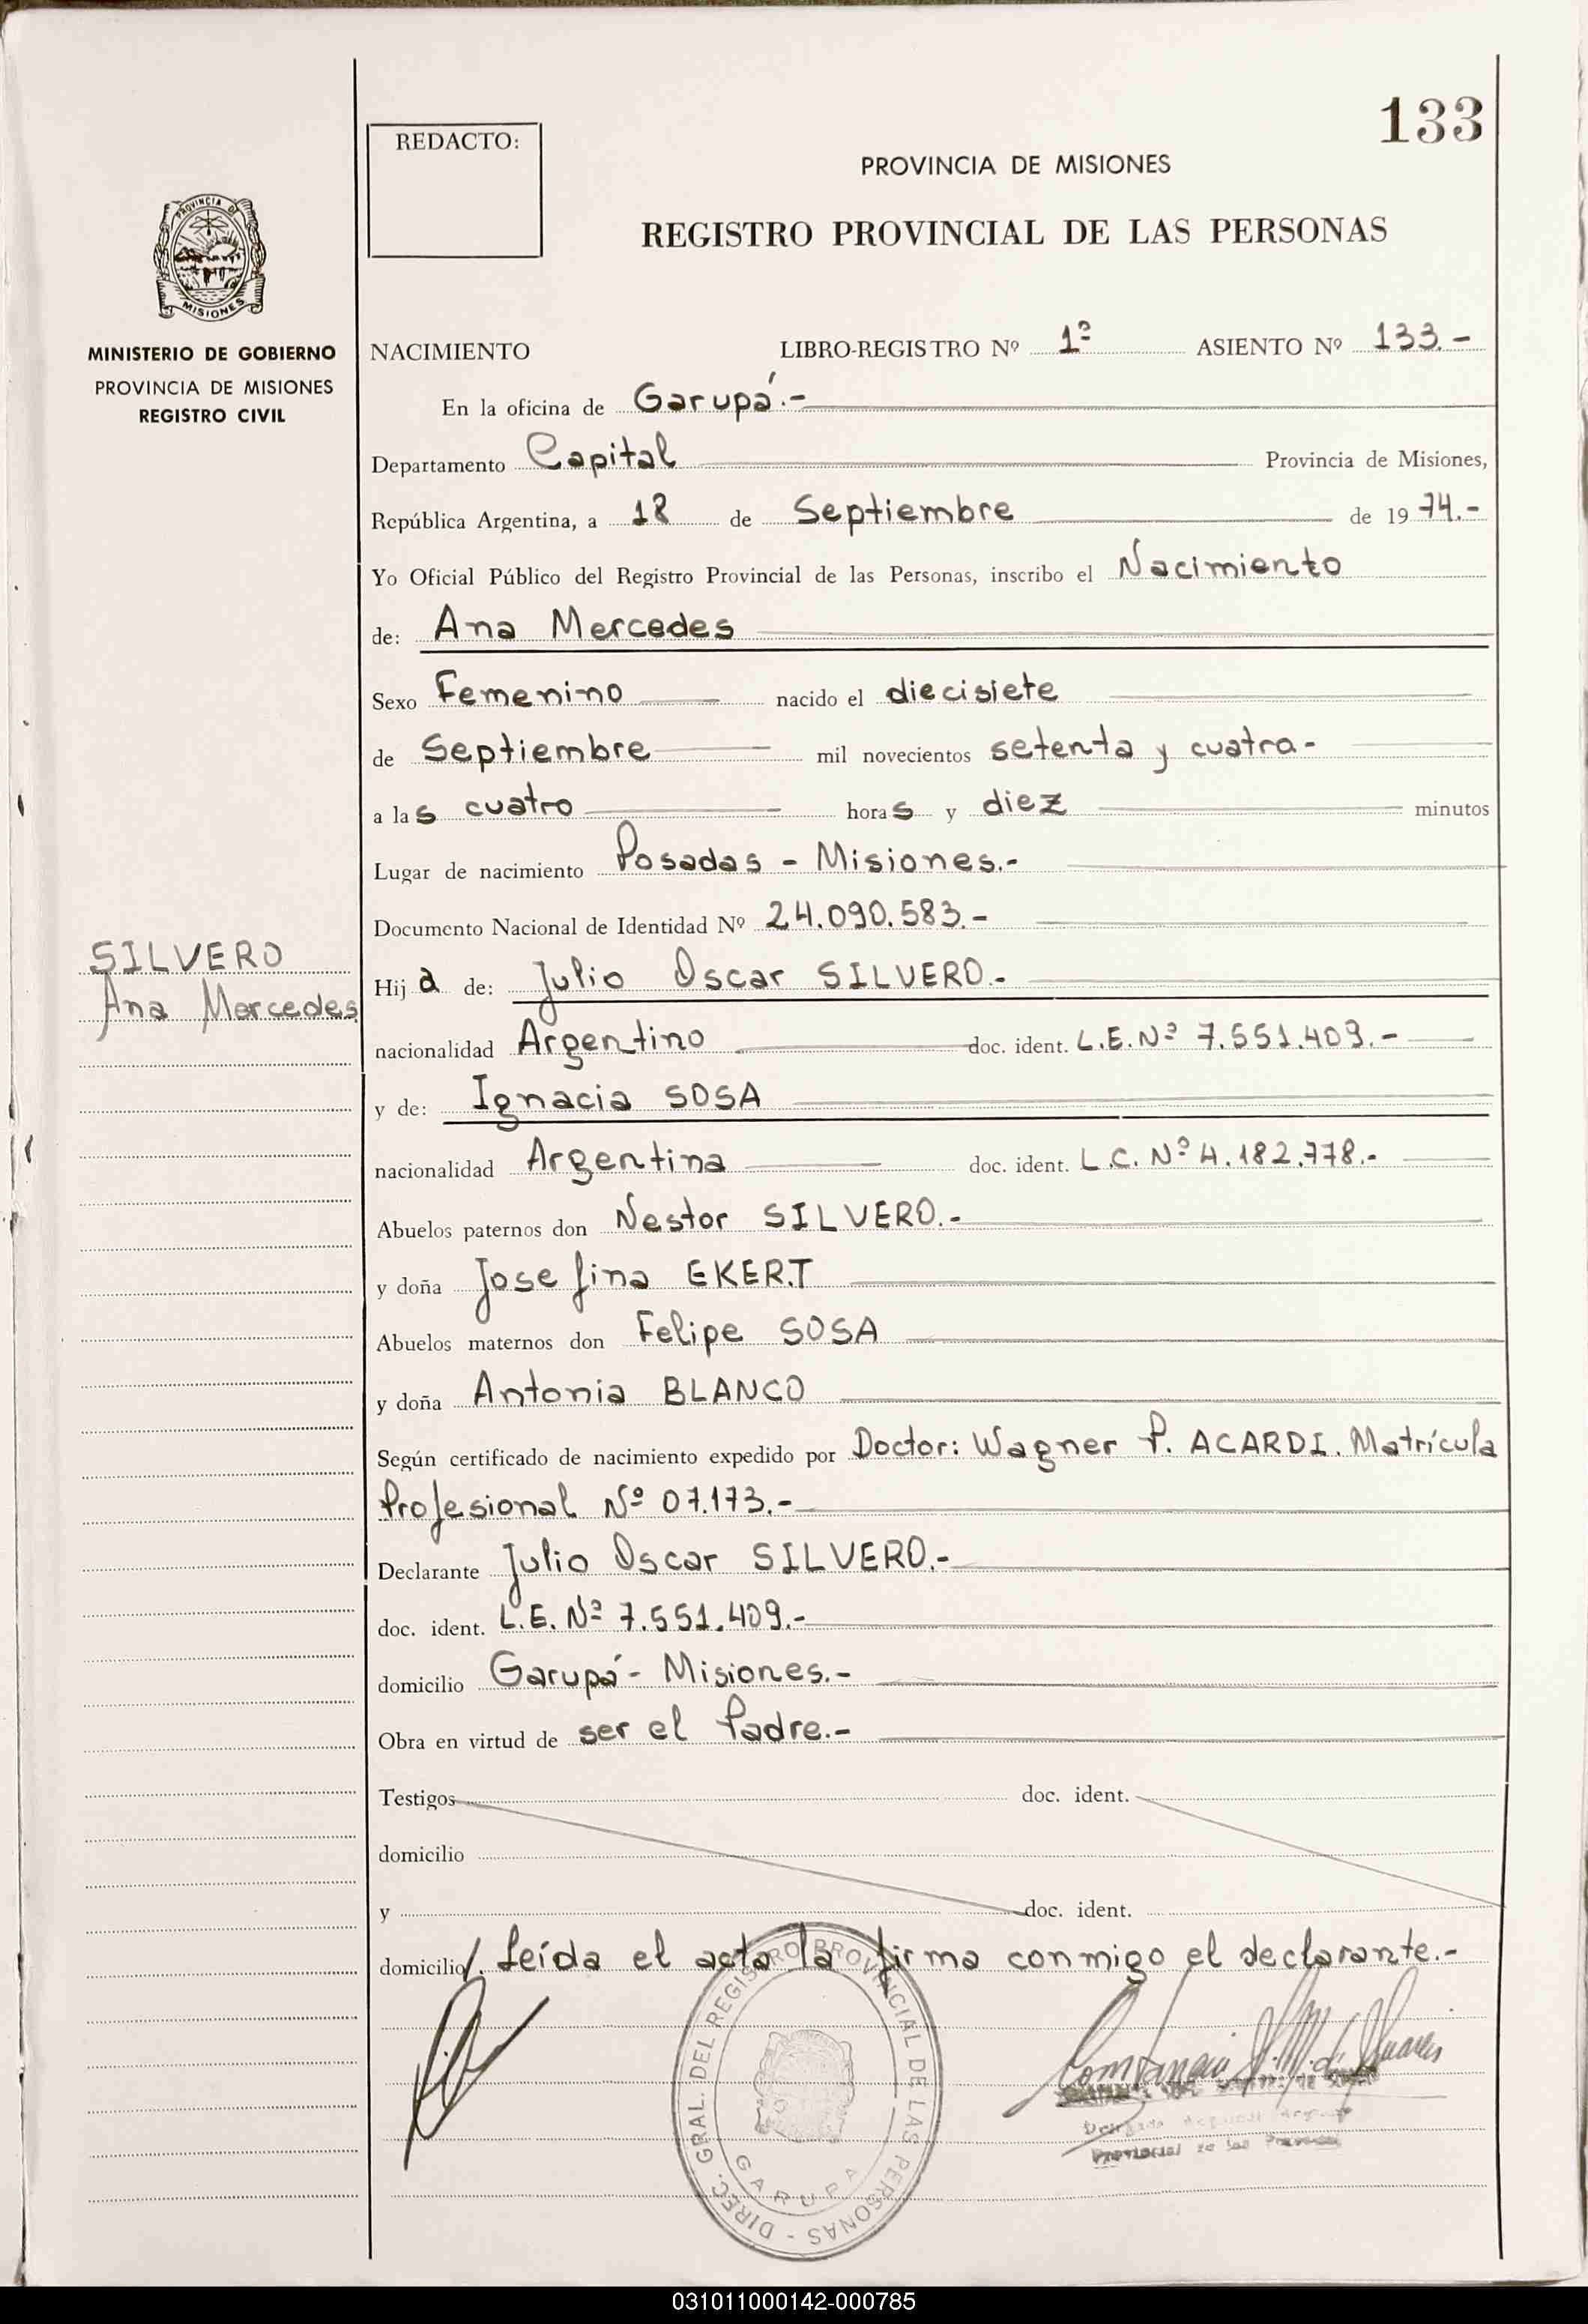 133
REDACTO:
PROVINCIA DE MISIONES
REGISTRO PROVINCIAL DE LAS PERSONAS
PROVINCIA DE
MISIONES
MINISTERIO DE GOBIERNO
PROVINCIA DE MISIONES
REGISTRO CIVIL
NACIMIENTO LIBRO-REGISTRO Nº 1º ASIENTO Nº 133.-
En la oficina de Garupá.-
Departamento Capital Provincia de Misiones,
República Argentina, a 18 de Septiembre de 1974.-
Yo Oficial Público del Registro Provincial de las Personas, inscribo el Nacimiento
de: Ana Mercedes
Sexo Femenino nacido el diecisiete
de Septiembre mil novecientos setenta y cuatro.-
a las cuatro horas y diez minutos
Lugar de nacimiento Posadas - Misiones.-
Documento Nacional de Identidad Nº 24.090.583.-
SILVERO
Ana Mercedes
Hija de: Julio Oscar SILVERO.-
nacionalidad Argentino doc. ident. L.E. Nº 7.551.409.-
y de: Ignacia SOSA
nacionalidad Argentina doc. ident. L.C. Nº 4.182.778.-
Abuelos paternos don Nestor SILVERO.-
y doña Josefina EKERT
Abuelos maternos don Felipe SOSA
y doña Antonia BLANCO
Según certificado de nacimiento expedido por Doctor: Wagner P. ACARDI. Matrícula
Profesional Nº 07.173.-
Declarante Julio Oscar SILVERO.-
doc. ident. L.E. Nº 7.551.409.-
domicilio Garupá - Misiones.-
Obra en virtud de ser el Padre.-
Testigos doc. ident.
domicilio
y doc. ident.
domicilio/. Leída el acta la firma conmigo el declarante.-
DIREC. GRAL. DEL REGISTRO PROVINCIAL DE LAS PERSONAS -
GARUPA
Provincial de las Personas
031011000142-000785